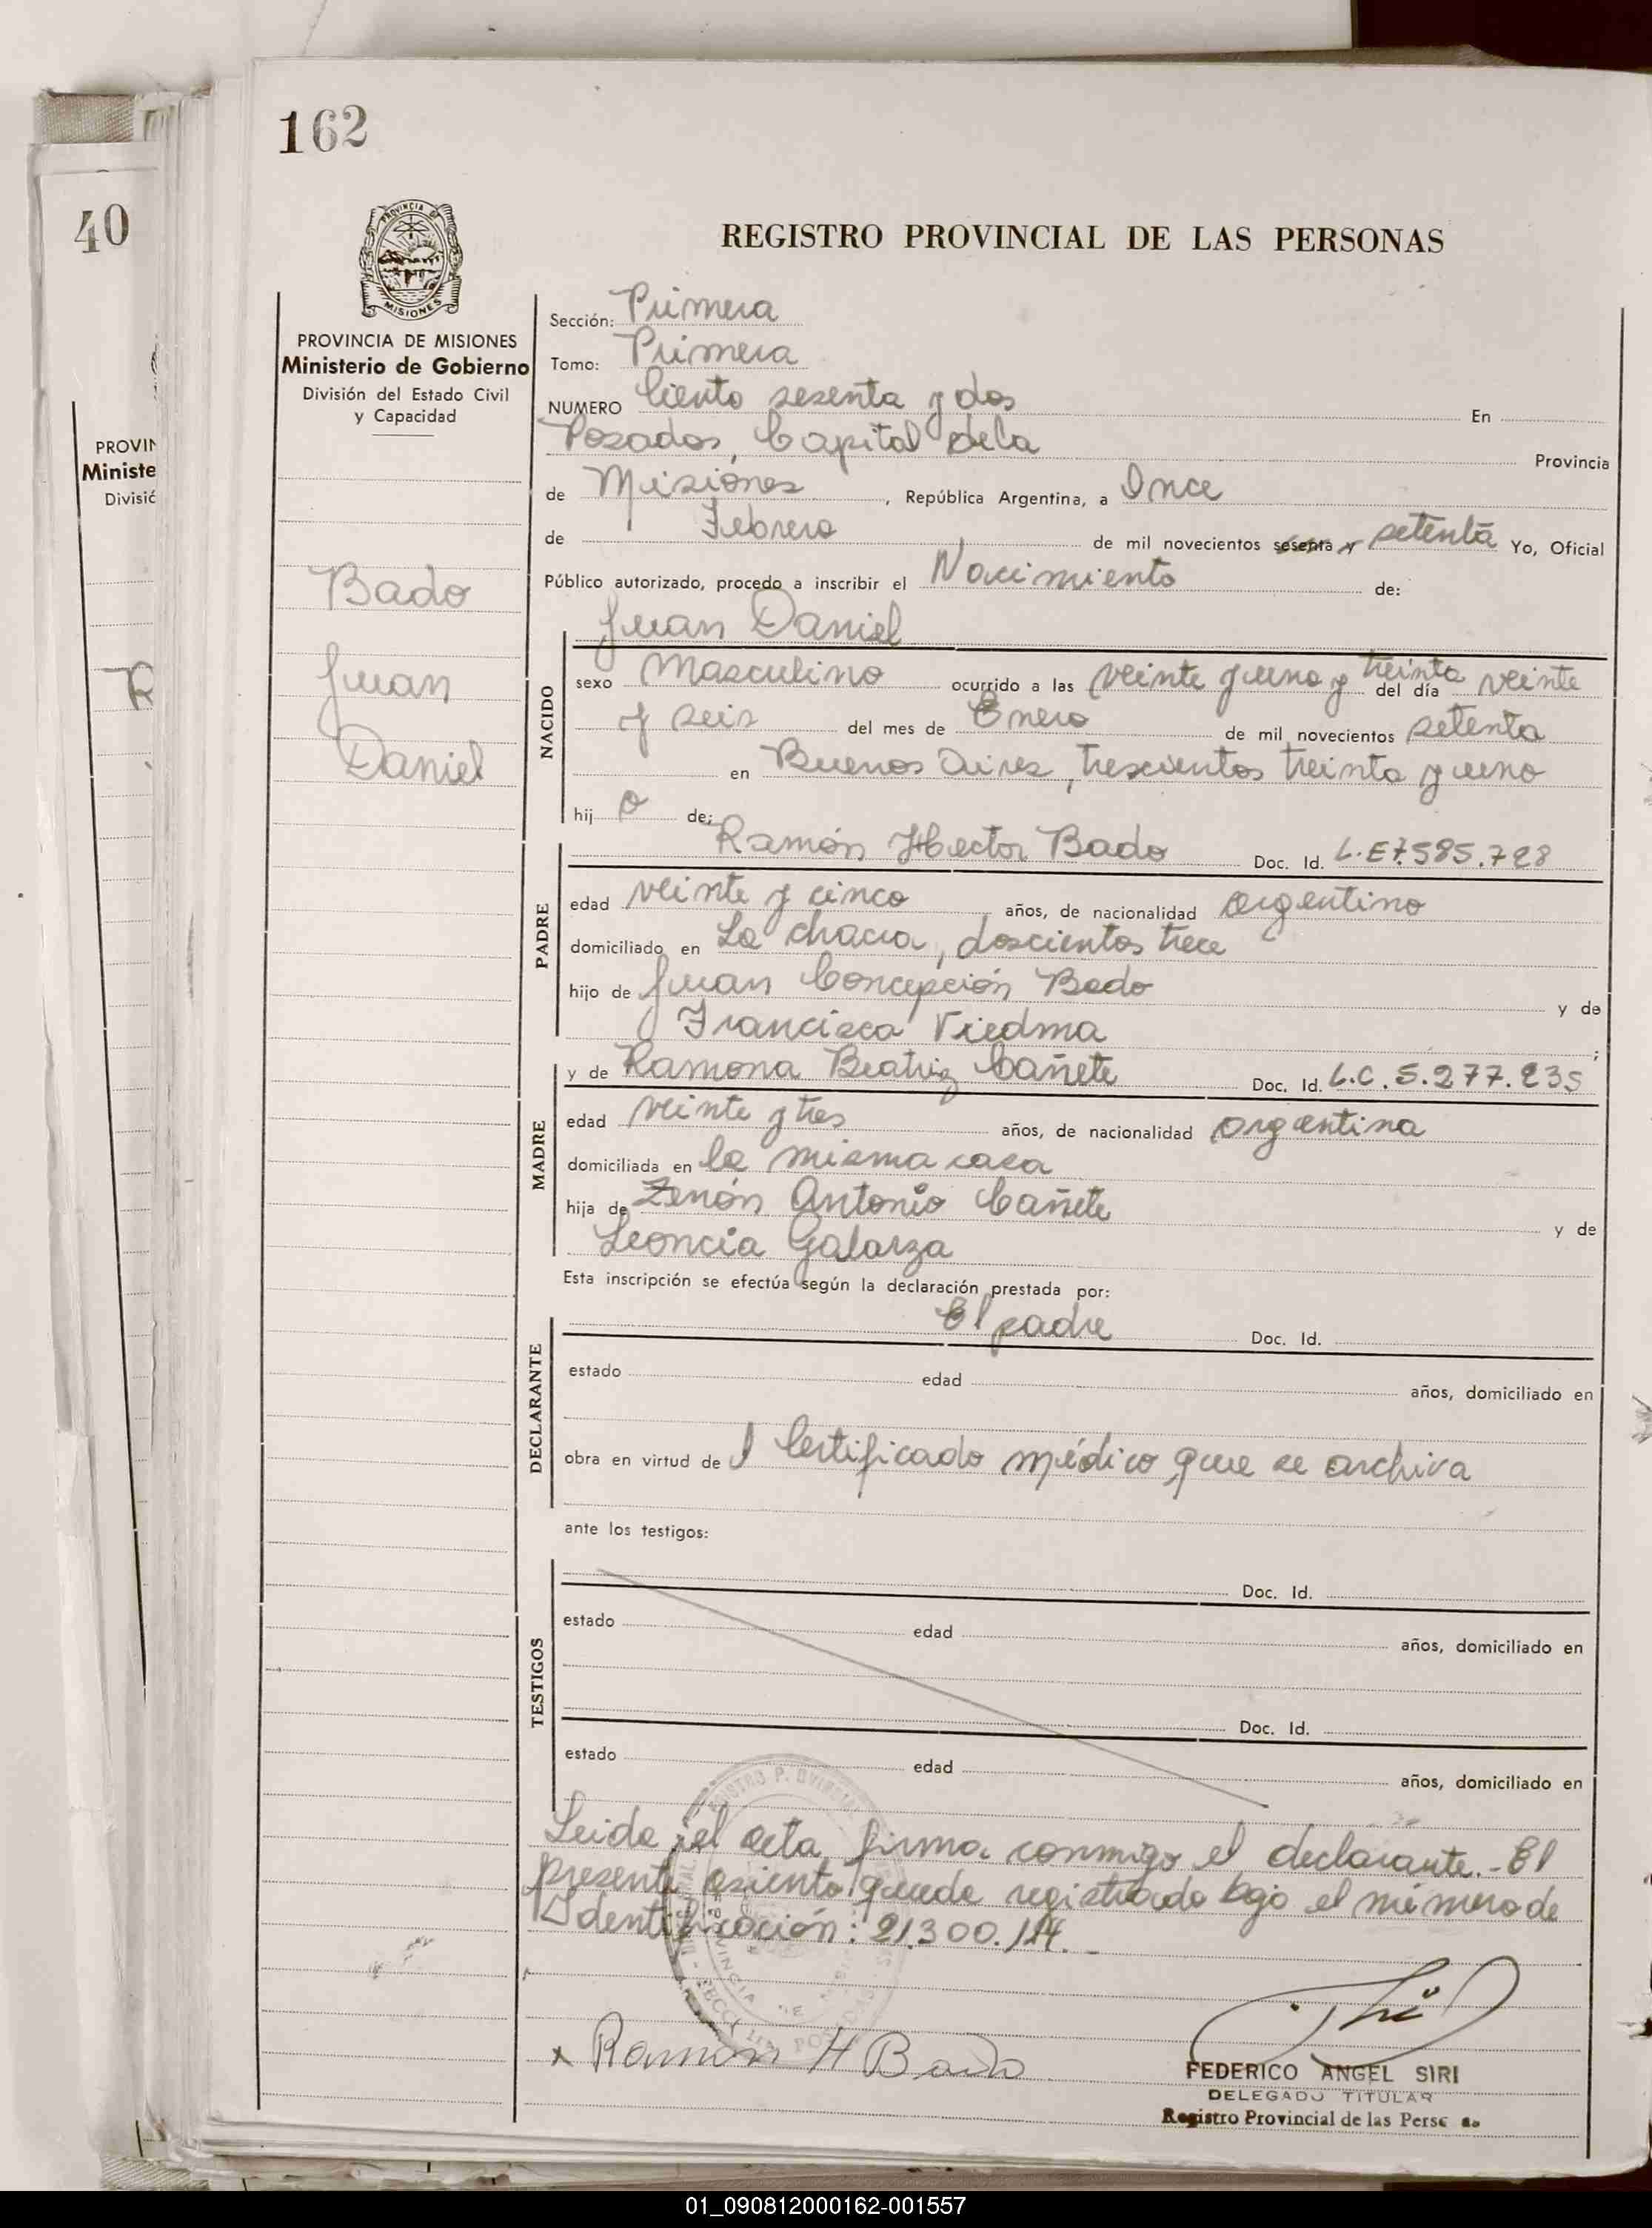 162
40
PROVINCIA DE
MISIONES
REGISTRO PROVINCIAL DE LAS PERSONAS
PROVINCIA DE MISIONES
Ministerio de Gobierno
División del Estado Civil
y Capacidad
PROVIN
Ministe
Divisió
Bado
Juan
Daniel
Sección: Primera
Tomo: Primera
NUMERO Ciento sesenta y dos En
Posadas, Capital dela Provincia
de Misiones, República Argentina, a Once
de Febrero de mil novecientos sesenta y setenta Yo, Oficial
Público autorizado, procedo a inscribir el Nacimiento de:
Juan Daniel
NACIDO
sexo Masculino ocurrido a las veinte y uno y treinta del día veinte
y seis del mes de Enero de mil novecientos setenta
en Buenos Aires, trescientos treinta y uno
hij o de:
PADRE
Ramón Hector Bado Doc. Id. L.E 7.585.728
edad veinte y cinco años, de nacionalidad argentino
domiciliado en La chacra, doscientos trece
hijo de Juan Concepción Bado y de
Francisca Viedma ;
MADRE
y de Ramona Beatriz Cañete Doc. Id. L.C. 5.277.235
edad veinte y tres años, de nacionalidad argentina
domiciliada en la misma casa
hija de Zenón Antonio Cañete y de
Leoncia Galarza
Esta inscripción se efectúa según la declaración prestada por:
DECLARANTE
El padre Doc. Id.
estado edad años, domiciliado en
obra en virtud de l Certificado médico que se archiva
ante los testigos:
TESTIGOS
Doc. Id.
estado edad años, domiciliado en
Doc. Id.
estado edad años, domiciliado en
Leida el acta, firma conmigo el declarante.- El
presente asiento queda registrado bajo el número de
Identificación: 21.300.114.-
x Ramón H Bado
FEDERICO ANGEL SIRI
DELEGADO TITULAR
Registro Provincial de las Perso as
01_090812000162-001557